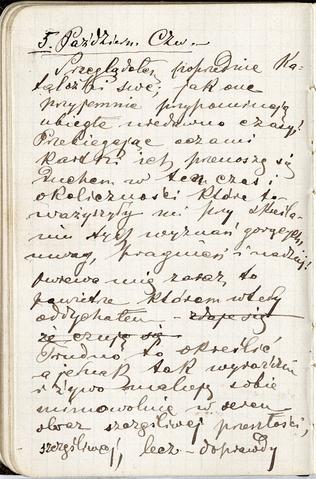 5. Październ. Czw. —
Przeglądałem poprzednie Ka-
jak one
przyjemnie przypominają
ubiegłe niedawno czasy!
Przebiegając oczami
kartki ich przenoszę się
Duchem w ten czas i
okoliczności które to-
warzyszyły mi przy kreśle-
niu tych wyznań gorzejących,
uwag, pragnień i nadziei!
mię zaraz to
powietrze którem wtedy
oddychałem — zdaje się
że czuję się
Trudno to określić
a jednak tak wyraźnie
i żywo maluję sobie
mimowolnie w sercu
obraz szczęśliwej przeszłości,
szczęśliwej, lecz — doprawdy